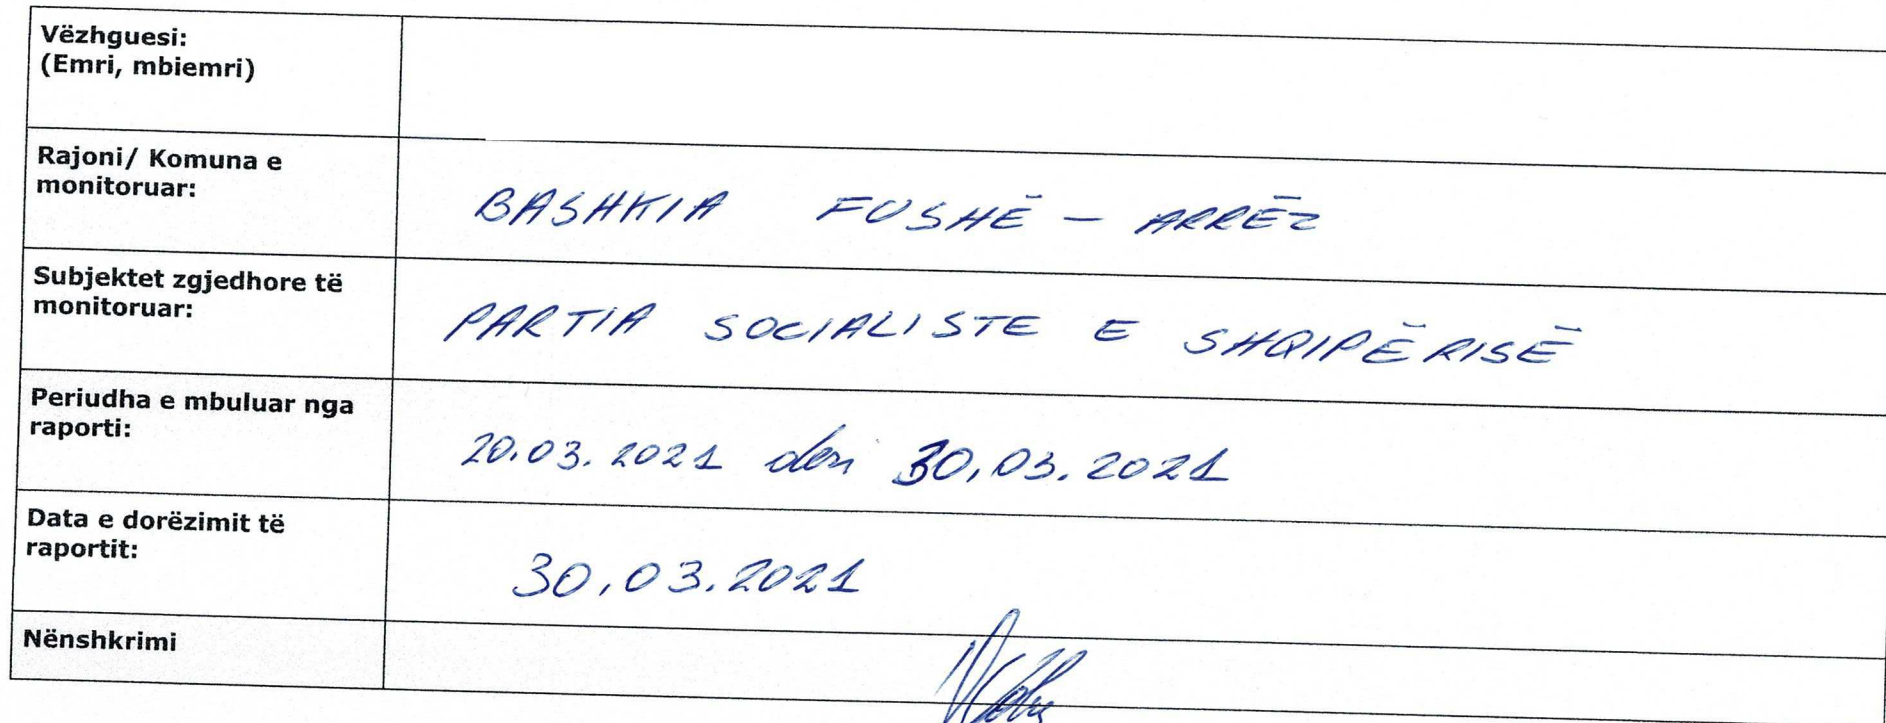 Vëzhguesi:
(Emri, mbiemri)
Rajoni/ Komuna e
monitoruar:
BASHKIA FUSHË - ARRËZ
Subjektet zgjedhore të
monitoruar:
PARTIA SOCIALISTE E SHQIPËRISË
Periudha e mbuluar nga
raporti:
20.03.2021 deri 30.03.2021
Data e dorëzimit të
raportit:
30.03.2021
Nënshkrimi